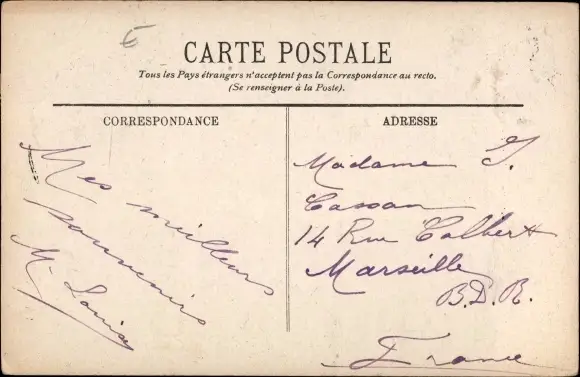 CARTE POSTALE
Tous les Pays étrangers n'acceptent pas la Correspondance au recto.
(Se renseigner à la Poste).
CORRESPONDANCE
Mes meilleurs
souvenirs
M. Louise
ADRESSE
Madame J.
Cassan
14 Rue Colbert
Marseille
B.D.R.
France